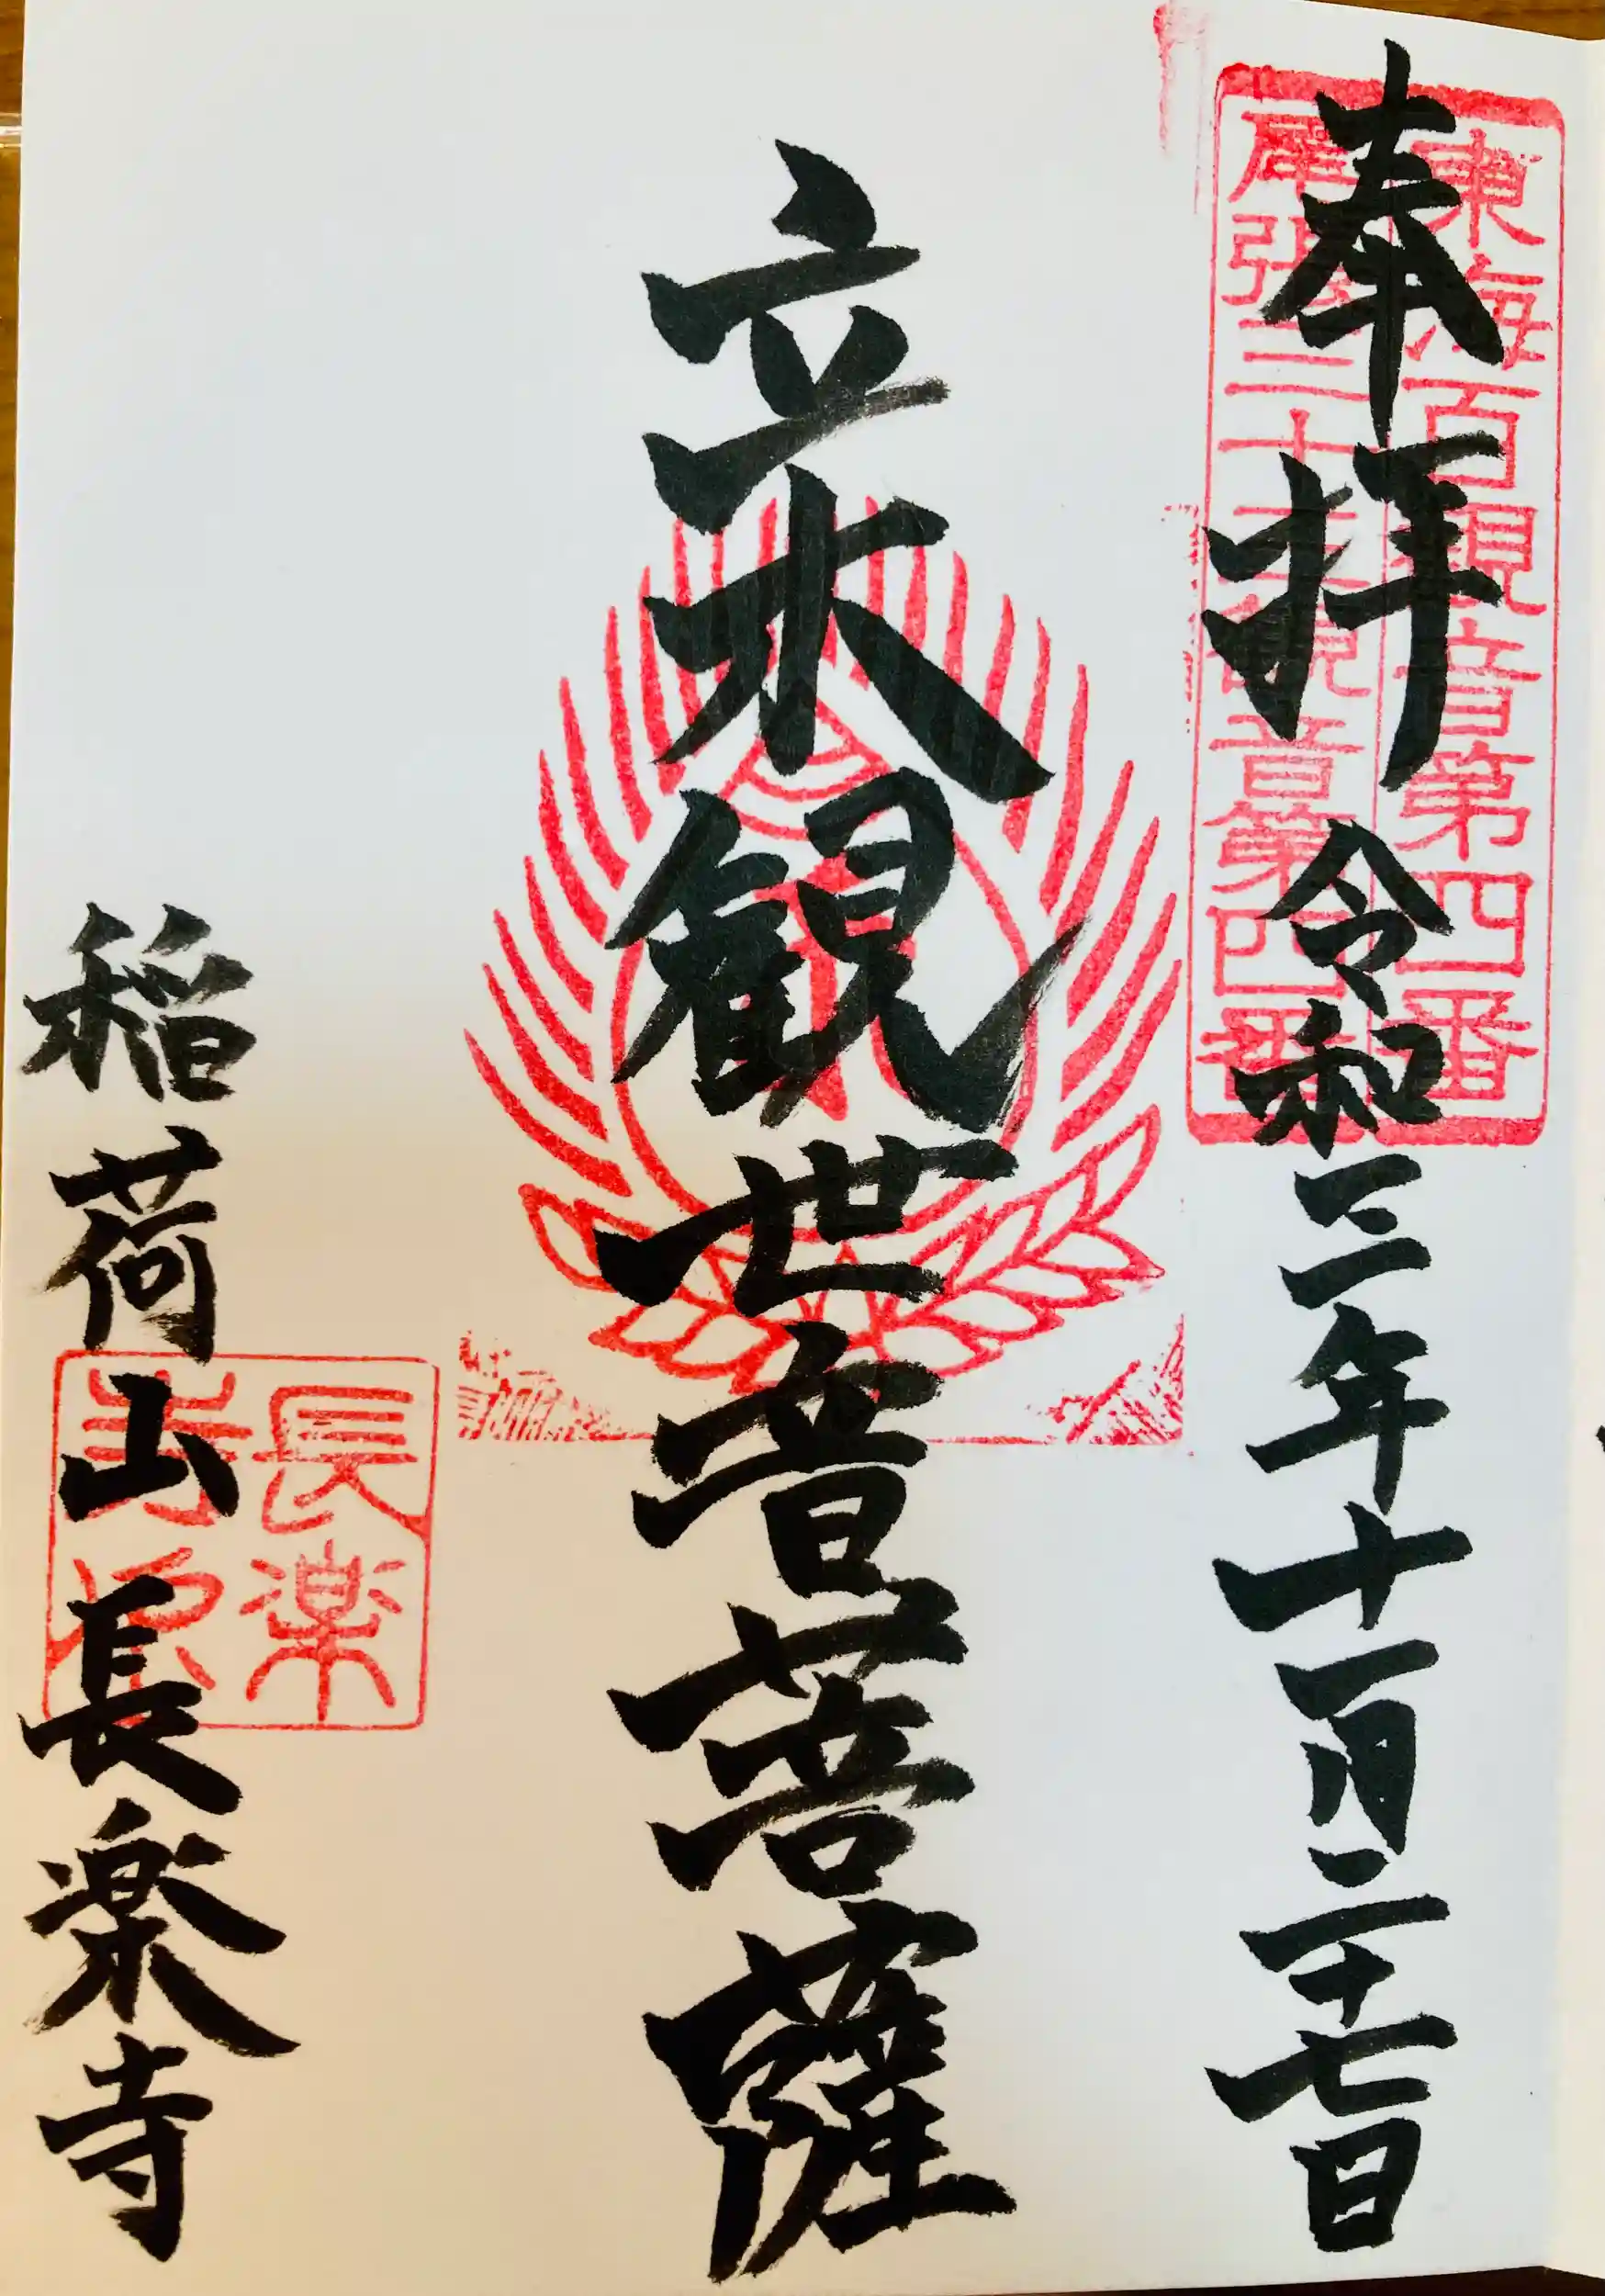 東海百観音第四番
尾張三十三観音第四番
奉拝 令和三年十一月二十七日
立木観世音菩薩
稲荷山 長楽寺
長楽
寺印